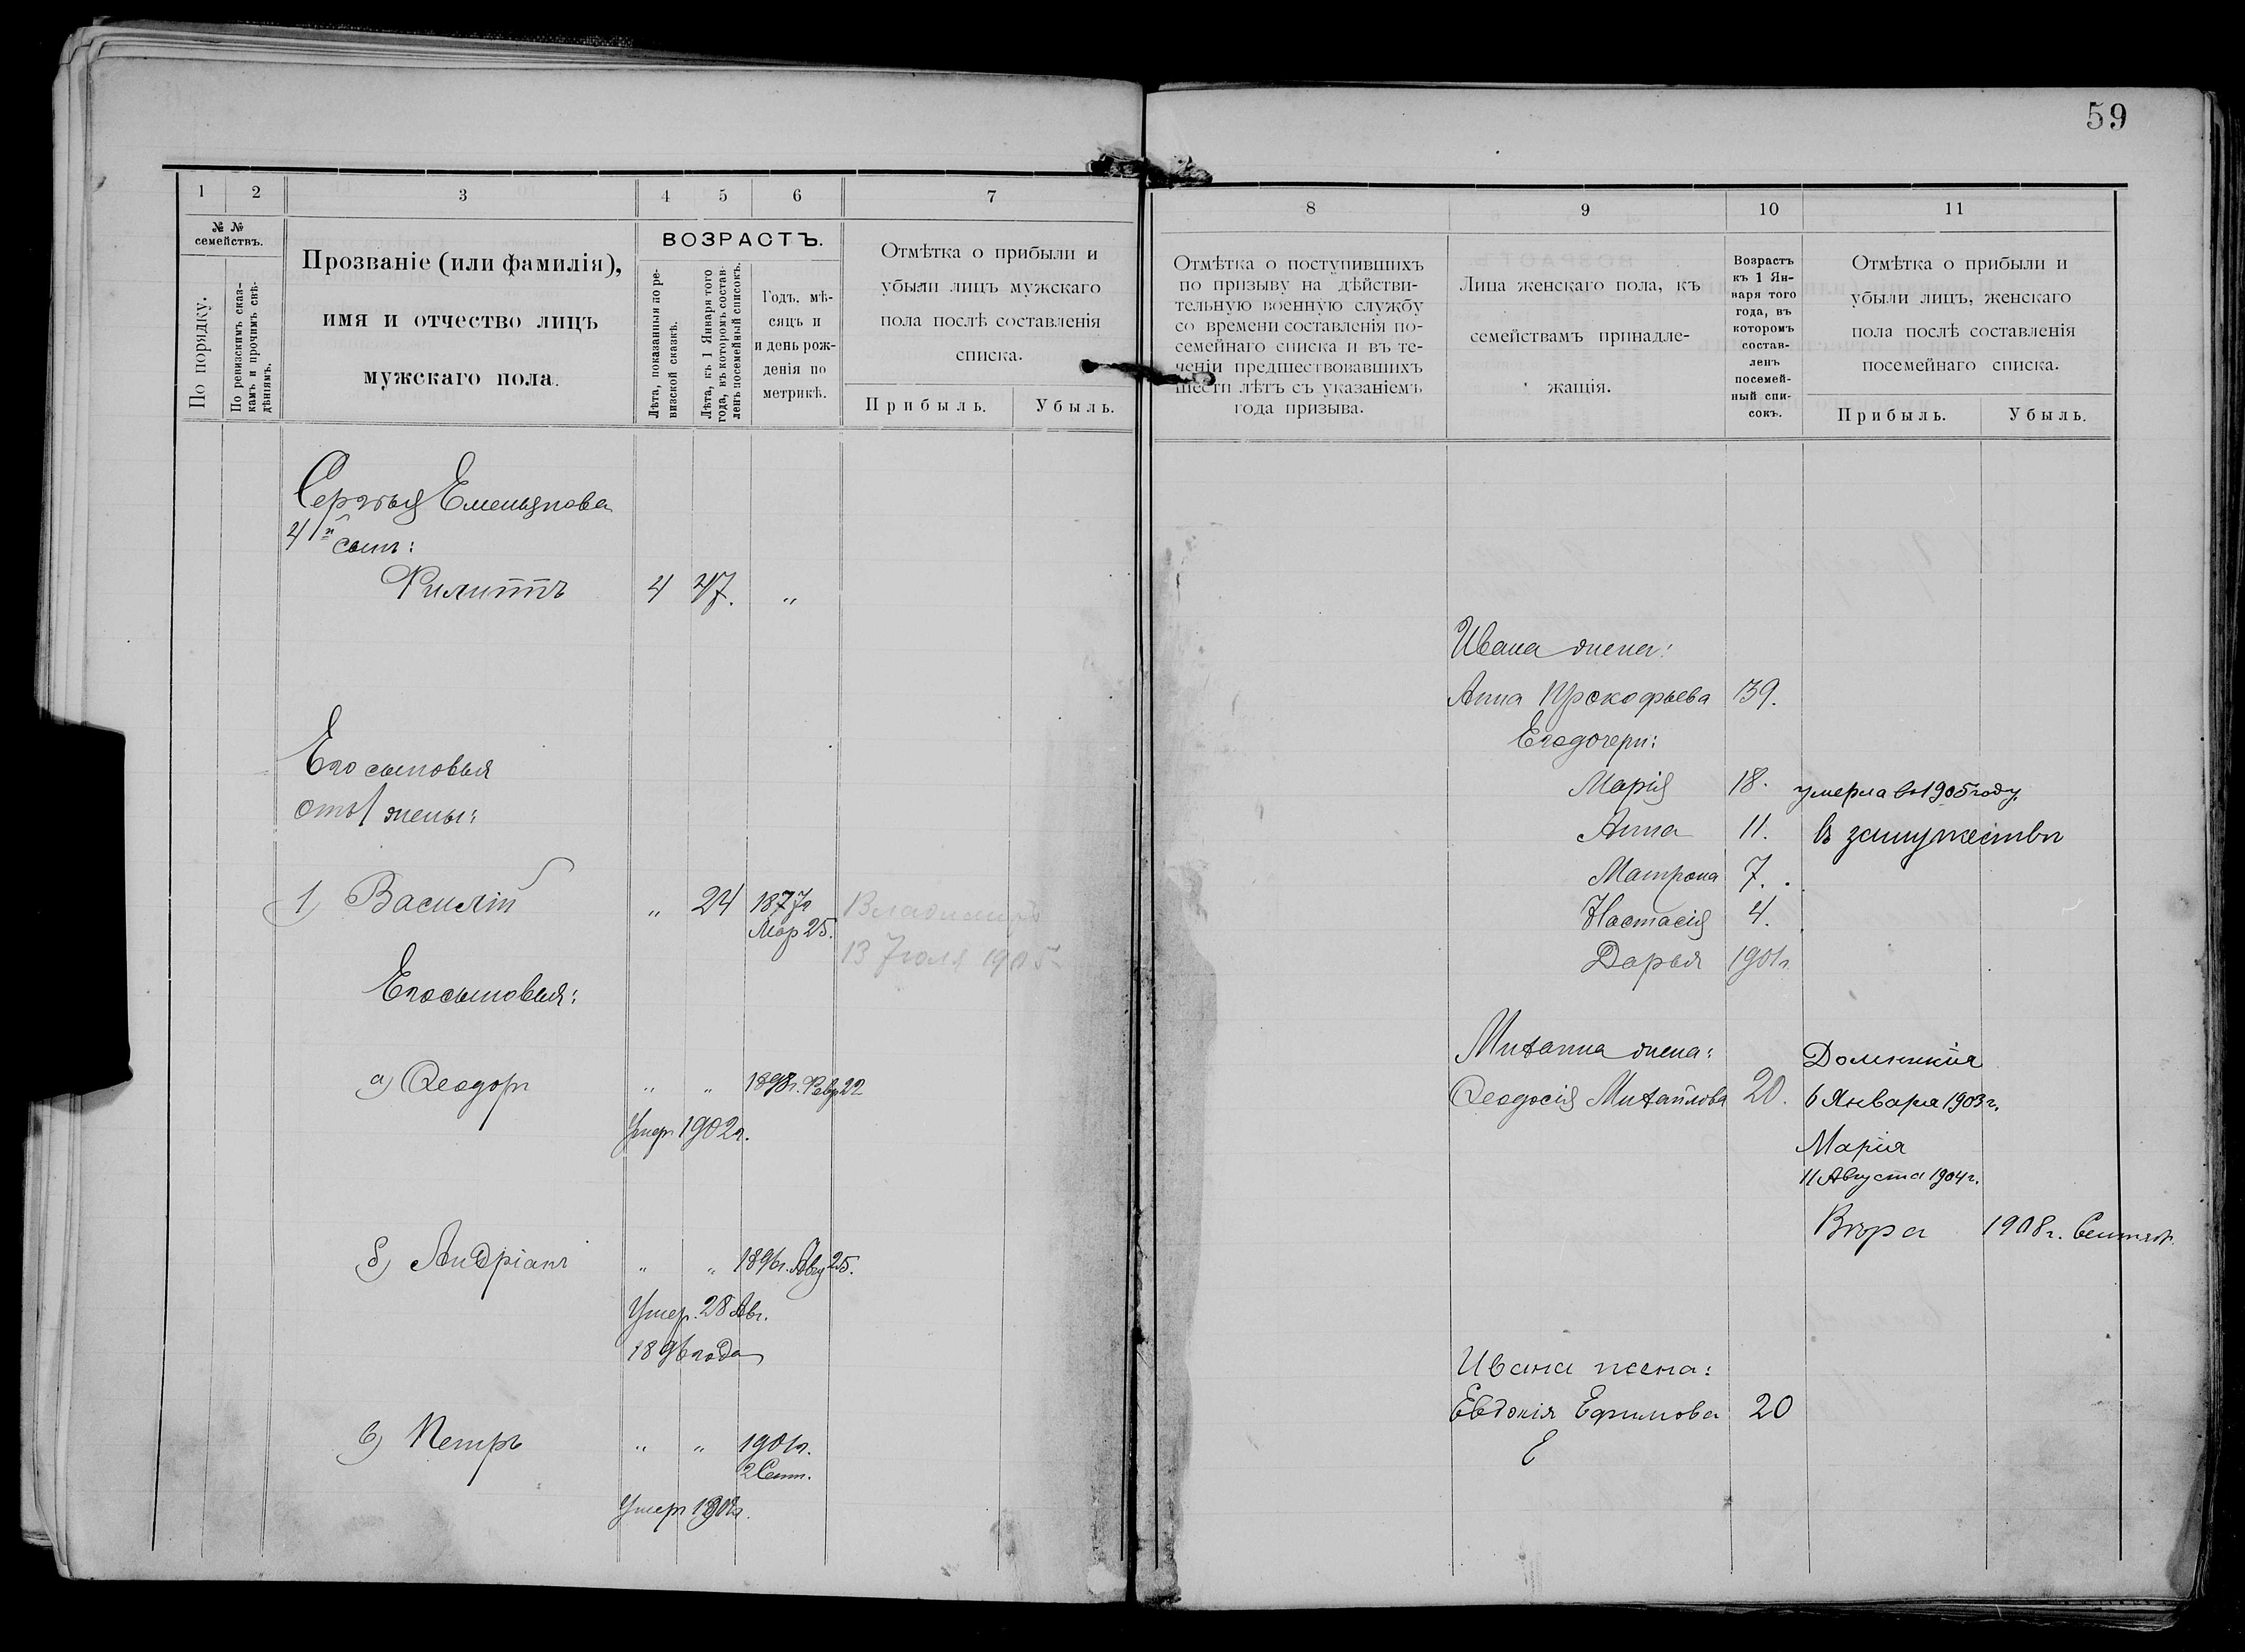 59
1
2
3
4
5
6
7
№ №
семействъ.
По порядку.
По ревизскимъ сказ-
камъ и прочимъ свѣ-
дѣніямъ.
Прозваніе (или фамилія),
имя и отчество лицъ
мужскаго пола.
ВОЗРАСТЪ.
Лѣта, показанныя по ре-
визской сказкѣ.
Лѣта, къ 1 Января того
года, въ которомъ состав-
ленъ посемейный списокъ.
Годъ, мѣ-
сяцъ и
и день рож-
денія по
метрикѣ.
Отмѣтка о прибыли и
убыли лицъ мужскаго
пола послѣ составленія
списка.
Прибыль.
Убыль.
Сергѣя Емельянова
4й сынъ:
Филиппъ 4 47. „
Его сыновья
отъ 1 жены:
1) Василій „ 24 1877г
Мар 25.
13 Іюля 1905
Его сыновья:
а) Ѳеодоръ „ „ 1898г. Февр 22
Умеръ 1902г.
б) Андріанъ „ „ 1896г. Авг 25.
Умер. 28 Авг.
1896 года
в) Петръ „ „ 1901г.
2 Сент.
Умеръ
8
9
10
11
Отмѣтка о поступившихъ
по призыву на дѣйстви-
тельную военную службу
со времени составленія по-
семейнаго списка и въ те-
ченіи предшествовавшихъ
шести лѣтъ съ указаніемъ
года призыва.
Лица женскаго пола, къ
семействамъ принадле-
жащія.
Возрастъ
къ 1 Ян-
варя того
года, въ
которомъ
состав-
ленъ
посемей-
ный спи-
сокъ.
Отмѣтка о прибыли и
убыли лицъ, женскаго
пола послѣ составленія
посемейнаго списка.
Прибыль.
Убыль.
Ивана жена:
Анна Прокофьева 39.
Его дочери:
Марія 18. умерла въ 1905 году.
Анна 11. въ замужествѣ
Матрона 7.
Настасія 4.
Дарья 1901г.
Михаила жена: Домникія
Ѳеодосія Михайлова 20. 6 Января 1903 г.
Марія
11 Августа 1904 г.
Вѣра 1908 г. Сентяб.
Ивана жена:
Евдокія Ефимова 20
Е